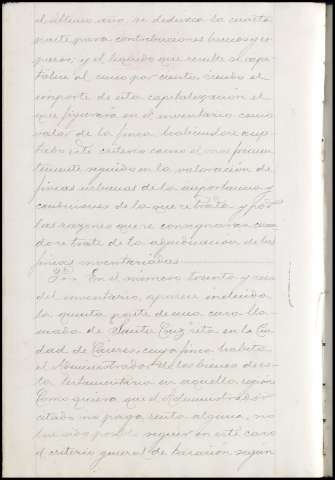 el último año, se deduzca la cuarta
parte para contribuciones huecos y re
paros, y el líquido que resulte se capi
talice al cinco por ciento, siendo el
importe de esta capitalización el
que figurará en el inventario como
valor de la finca habiéndose acep
tado este criterio como el más frecuen
temente seguido en la valoración de
fincas urbanas de la importancia y
condiciones de la que se trata y por
las razones que se consignarán cuan
do se trate de la adjudicación de las
fincas inventariadas.
En el número treinta y seis
del inventario, aparece incluida
la quinta parte de una casa lla
mada de Santa Cruz sita en la Ciu
dad de Cáceres, cuya finca habita
el Administrador de los bienes de es
ta testamentaria en aquella región
Como quiera que el Administrador
citado no paga renta alguna, no
ha sido posible seguir en este caso
el criterio general de tasación según